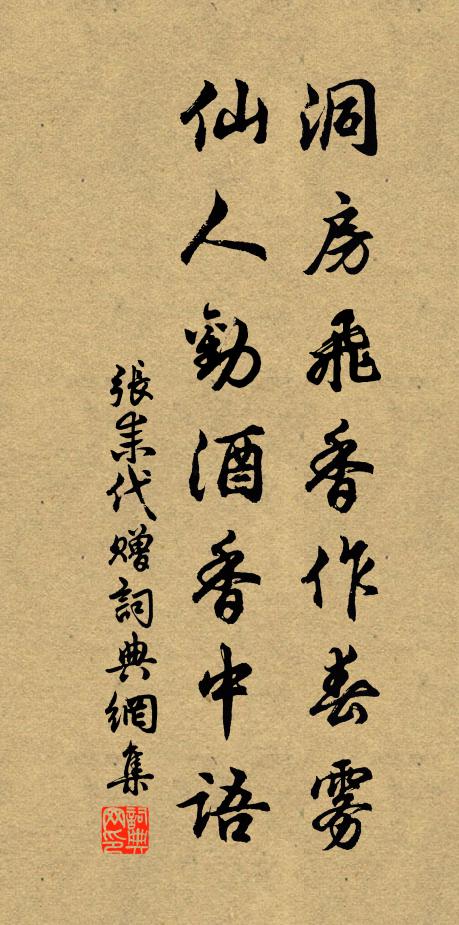 洞房飛香作春霧
仙人勸酒香中語
張耒代贈詞典網集
詞典網印